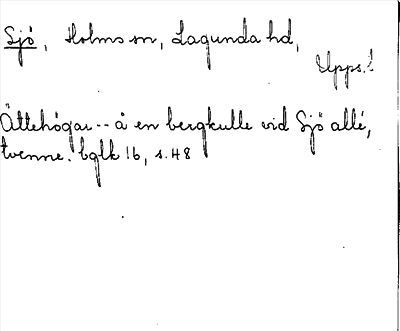 Sjö, Holms sn, Lagunda hd,
Upps. l
Ättehögar -- å en bergkulle vid Sjö allé,
tvenne. bglk 16, s. 48